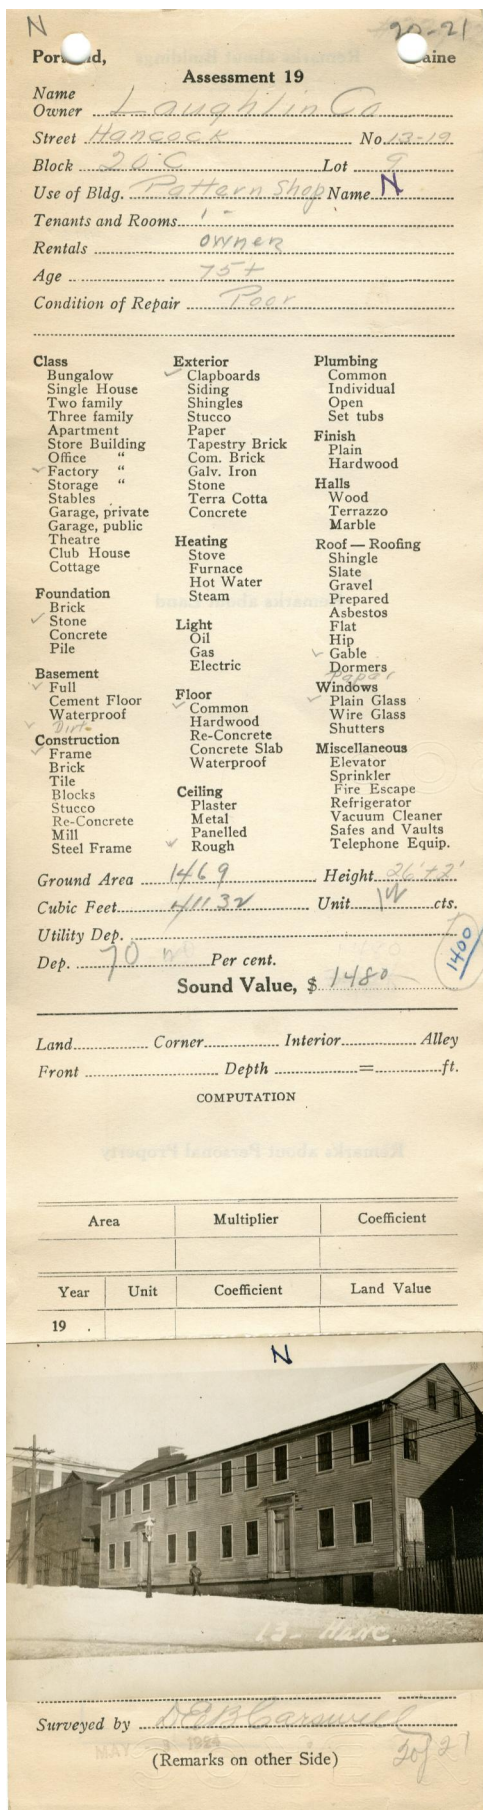 N
20-21
Portland, Maine
Assessment 19
Name
Owner Laughlin Co
Street Hancock No. 13-19
Block 20 C Lot 9
Use of Bldg. Pattern Shop Name N
Tenants and Rooms 1 -
Rentals owner
Age 75+
Condition of Repair Poor
Class
Bungalow
Single House
Two family
Three family
Apartment
Store Building
Office "
✓ Factory "
Storage "
Stables
Garage, private
Garage, public
Theatre
Club House
Cottage
Foundation
Brick
✓ Stone
Concrete
Pile
Basement
✓ Full
Cement Floor
Waterproof
✓ Dirt
Construction
✓ Frame
Brick
Tile
Blocks
Stucco
Re-Concrete
Mill
Steel Frame
Exterior
✓ Clapboards
Siding
Shingles
Stucco
Paper
Tapestry Brick
Com. Brick
Galv. Iron
Stone
Terra Cotta
Concrete
Heating
Stove
Furnace
Hot Water
Steam
Light
Oil
Gas
Electric
Floor
✓ Common
Hardwood
Re-Concrete
Concrete Slab
Waterproof
Ceiling
Plaster
Metal
Panelled
✓ Rough
Plumbing
Common
Individual
Open
Set tubs
Finish
Plain
Hardwood
Halls
Wood
Terrazzo
Marble
Roof — Roofing
Shingle
Slate
Gravel
Prepared
Asbestos
Flat
Hip
✓ Gable
Dormers
Papar
Windows
✓ Plain Glass
Wire Glass
Shutters
Miscellaneous
Elevator
Sprinkler
Fire Escape
Refrigerator
Vacuum Cleaner
Safes and Vaults
Telephone Equip.
Ground Area 1469 Height 26'+2'
Cubic Feet 41132 Unit cts.
Utility Dep.
Dep. 70 Per cent.
1400
Sound Value, $ 1480
Land Corner Interior Alley
Front Depth = ft.
COMPUTATION
Area Multiplier Coefficient
Year Unit Coefficient Land Value
19 .
N
13- Hanc.
Surveyed by D E B Carswell
MAY 1924
20 of 21
(Remarks on other Side)